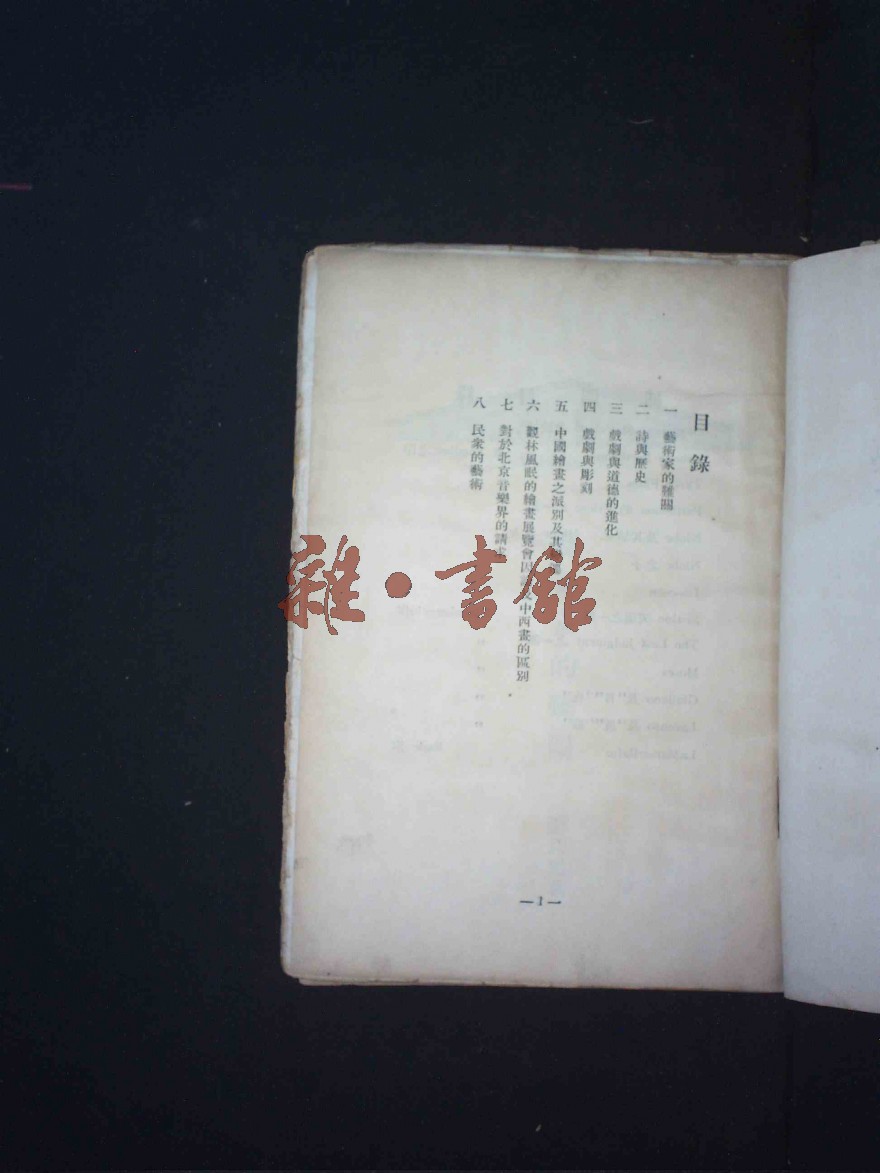 目錄
一 藝術家的難關
二 詩與歷史
三 戲劇與道德的進化
四 戲劇與彫刻
五 中國繪畫之派別及其
六 觀林風眠的繪畫展覽會因 中西畫的區別
七 對於北京音樂界的請
八 民衆的藝術
—1—
雜·書館